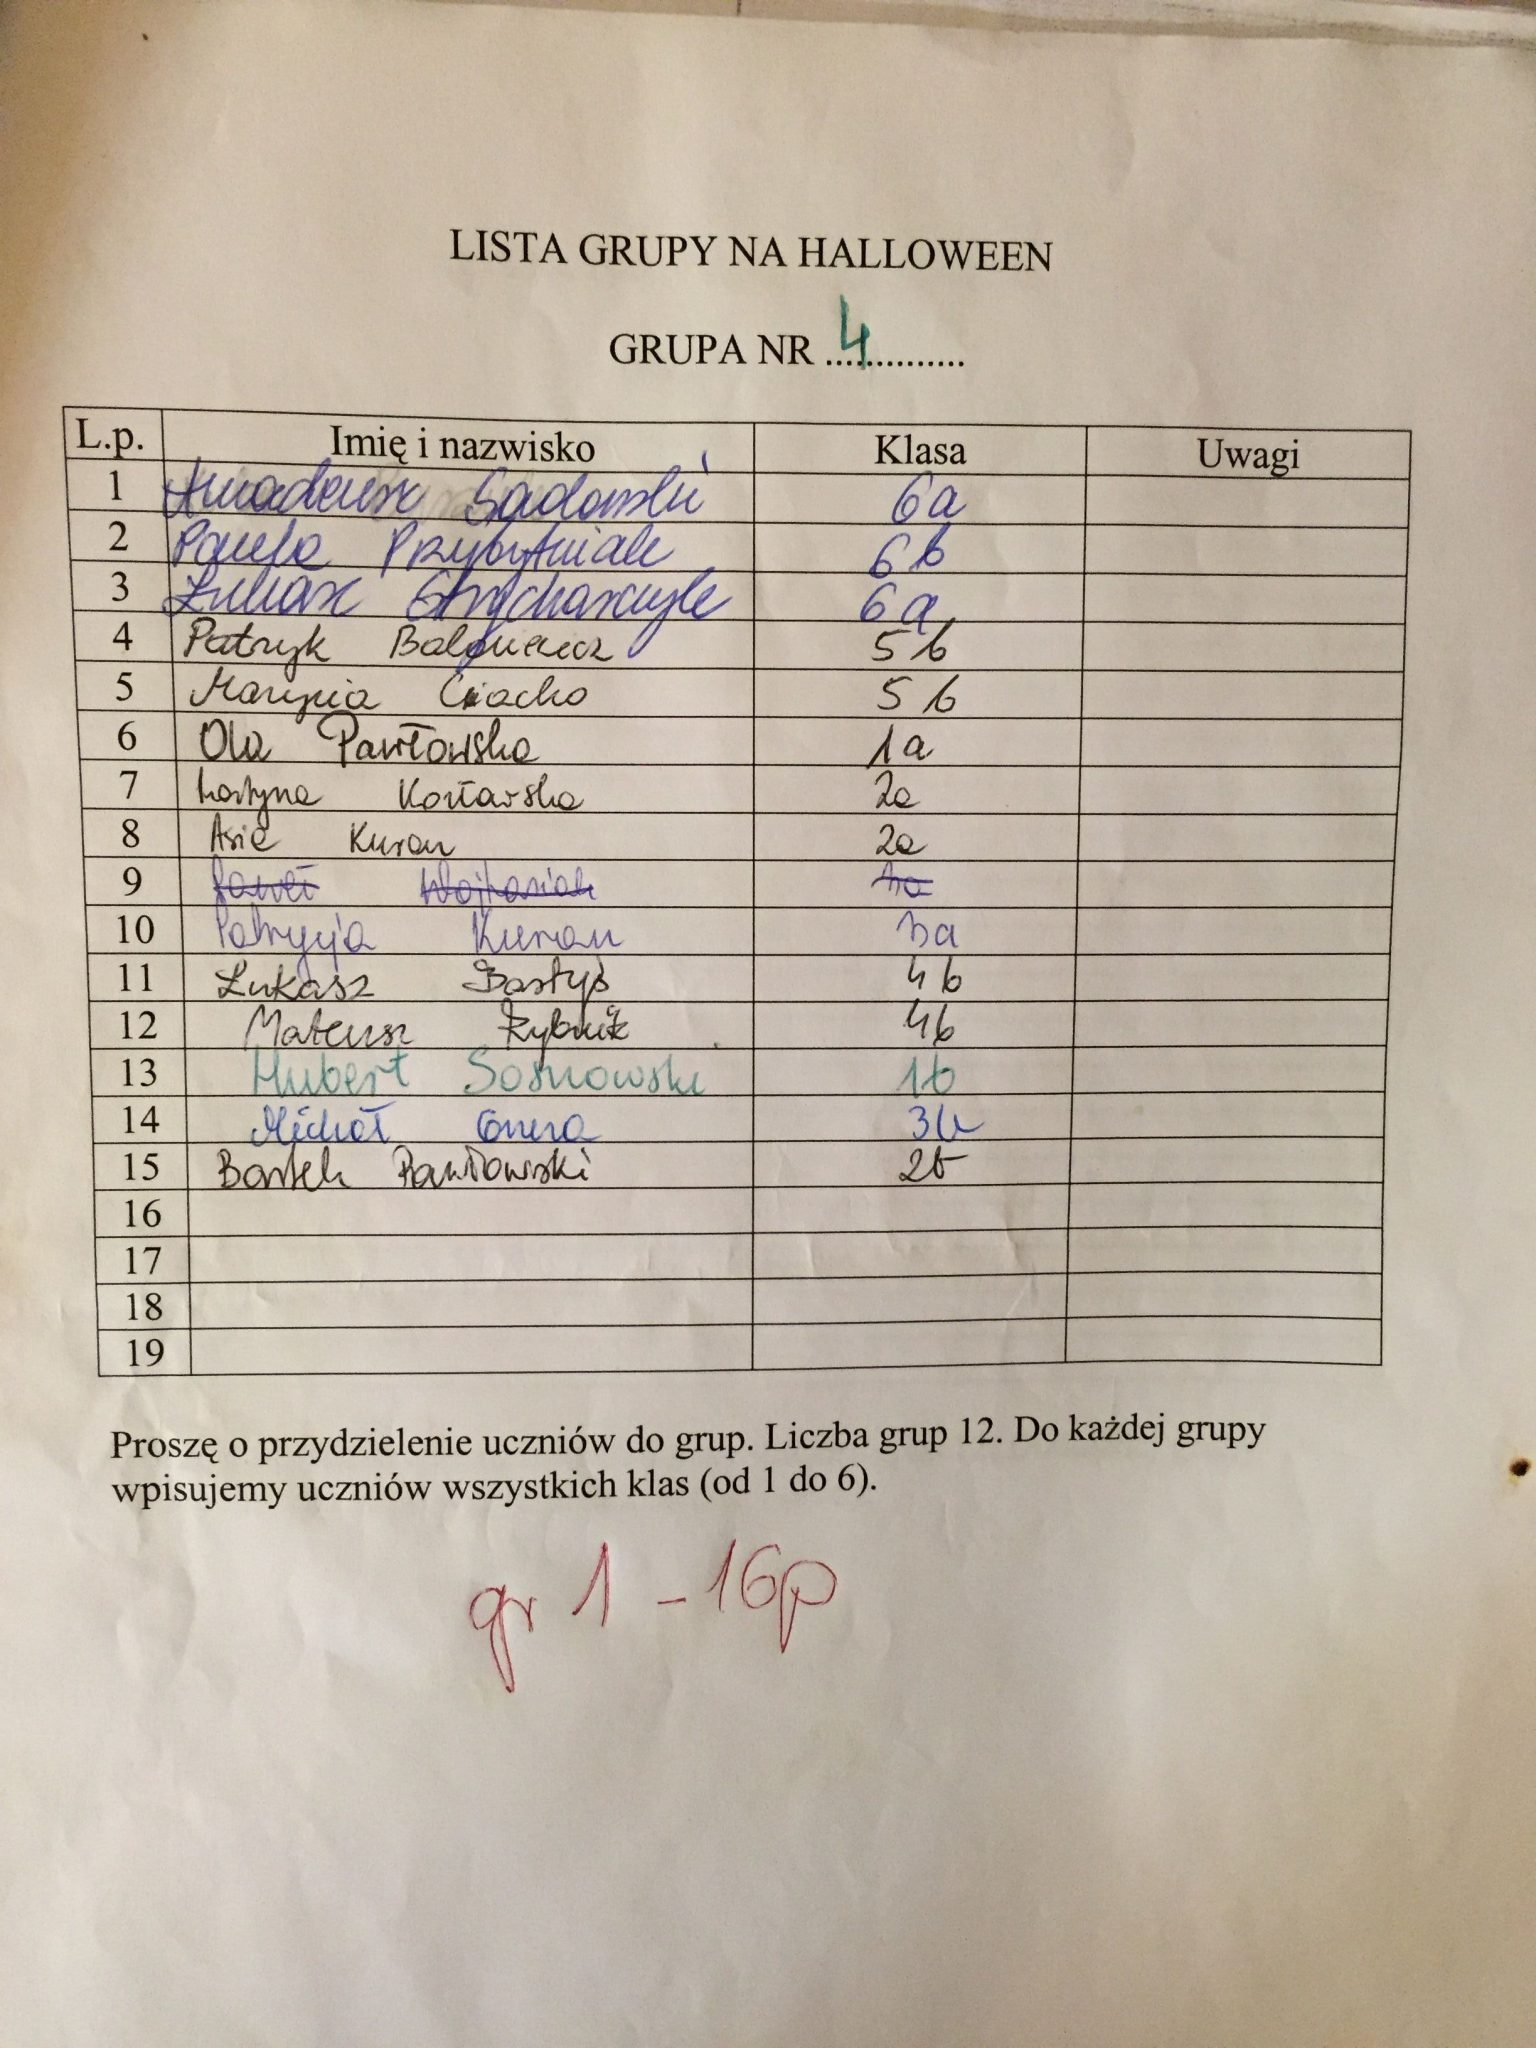 LISTA GRUPY NA HALLOWEEN
GRUPA NR ..4..........
L.p. Imię i nazwisko Klasa Uwagi
1 Amadeusz Sadowski 6a
2 Paula Przybytniak 6b
3 Łukasz Strycharczyk 6a
4 Patryk 5b
5 Marysia Ciacho 5b
6 Ola Pawłowska 1a
7 2a
8 Asia Kuran 2a
9 Paweł Wojtasiak
10 Patrycja Kuran 3a
11 Łukasz Bastyś 4b
12 Mateusz Rybnik 4b
13 Hubert Sosnowski 1b
14 Michał 3b
15 Bartek Pawłowski 2b
16
17
18
19
Proszę o przydzielenie uczniów do grup. Liczba grup 12. Do każdej grupy
wpisujemy uczniów wszystkich klas (od 1 do 6).
gr 1 - 16p